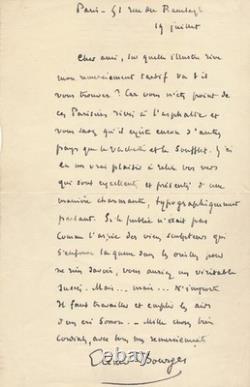 Paris - 51 rue du Ranelagh
19 juillet
Cher ami, sur quelle illustre rive
mon remerciement tardif va-t-il
vous trouver ? Car vous n'êtes point de
ces Parisiens rivés à l'asphalte et
vous savez qu'il existe encore d'autres
pays que la Vachette et le Soufflet. J'ai
eu un vrai plaisir à relire vos vers
qui sont excellents et présentés d'une
manière charmante, typographiquement
parlant. Si le public n'était pas
comme l'aspic des vieux sculpteurs qui
s'enfonce la queue dans les oreilles pour
ne rien savoir, vous auriez un véritable
succès. Mais... mais... N'importe
Il faut travailler et emplir les airs
d'un cri sonore. - Mille choses très
cordiales, avec tous mes remerciements
Bourges